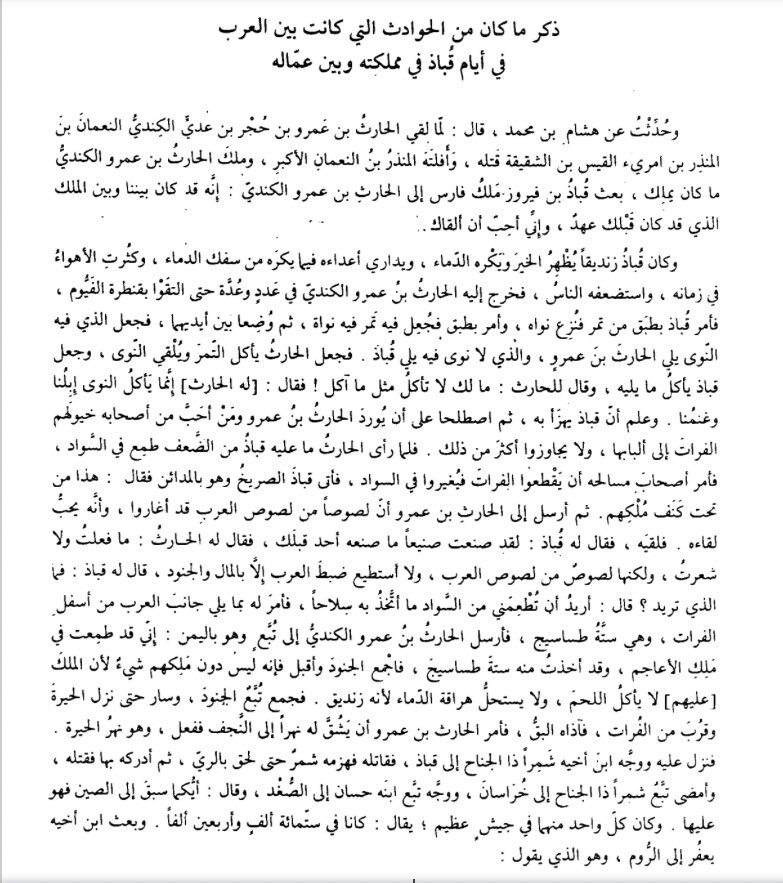 ذكر ما كان من الحوادث التي كانت بين العرب
في أيام قُباذ في مملكته وبين عمّاله
وحُدِّثْتُ عن هشام بن محمد ، قال : لمّا لقي الحارثُ بن عَمرو بن حُجْر بن عديّ الكِنديُّ النعمانَ بنَ
المنذِر بن امريء القيس بن الشقيقة قتله ، وَأفلتَهُ المنذرُ بنُ النعمانِ الأكبرِ ، وملكَ الحارثُ بن عمرو الكنديُّ
ما كان يملِك ، بعث قُباذُ بن فيروز مَلكُ فارس إلى الحارثِ بن عمرو الكنديّ : إنَّه قد كان بيننا وبين الملك
الذي قد كان قَبْلك عهدٌ ، وإنِّي أحبّ أن ألقاك .
وكان قُباذُ زنديقاً يُظْهِرُ الخيرَ ويَكْره الدّماء ، ويداري أعداءه فيما يكرَه من سفك الدماء ، وكثُرتِ الأهواءُ
في زمانه ، واستضعفه الناسُ ، فخرج إليه الحارثُ بنُ عمرو الكنديّ في عَددٍ وعُدَّة حتى التقَوْا بقنطرة الفَيُّوم ،
فأمر قُباذ بطبَق من تمر فنُزع نواه ، وأمر بطبق فجُعل فيه تَمر فيه نواة ، ثم وُضِعا بين أيديهما ، فجعل الذي فيه
النّوى يلي الحارثَ بنَ عمروٍ ، والذي لا نوى فيه يلي قُباذَ . فجعل الحارثُ يأكل التّمرَ ويُلْقي النّوى ، وجعل
قباذ يأكلُ ما يليه ، وقال للحارث : ما لك لا تأكلُ مثل ما آكل ! فقال : [له الحارث] إنَّما يَأكلُ النوى إبلُنا
وغنمُنا . وعلم أنّ قباذ يهزَأ به ، ثم اصطلحا على أن يُوردَ الحارثُ بنُ عمرو ومَنْ أحَبَّ من أصحابه خيولَهُم
الفراتَ إلى ألبابها ، ولا يجاوزوا أكثرَ من ذلك . فلما رأى الحارثُ ما عليه قباذُ من الضَّعف طمِع في السَّواد ،
فأمر أصحابَ مسالحه أن يَقْطعوا الفراتَ فيُغيروا في السواد ، فأتى قباذَ الصريخُ وهو بالمدائن فقال : هذا من
تحت كَنَف مُلْكِهم . ثم أرسل إلى الحارثِ بن عمرو أنّ لصوصاً من لصوص العرب قد أغاروا ، وأنَّه يحبُّ
لقاءه . فلقيَه ، فقال له قُباذ : لقد صنعت صنيعاً ما صنعه أحد قبلَك ، فقال له الحارثُ : ما فعلتُ ولا
شعرتُ ، ولكنها لصوصٌ من لصوص العرب ، ولا أستطيع ضبطَ العرب إلَّا بالمال والجنود ، قال له قباذ : فما
الذي تريد ؟ قال : أريدُ أن تُطْعِمَني من السَّواد ما أتَّخذُ به سِلاحاً ، فأمَر له بما يلي جانبَ العرب من أسفل
الفرات ، وهي ستَّةُ طساسيج ، فأرسل الحارثُ بنُ عمرو الكنديُّ إلى تُبَّعٍ وهو باليمن : إنِّي قد طمِعت في
مَلِك الأعاجم ، وقد أخذتُ منه ستةَ طساسيجَ ، فاجْمع الجنودَ وأقبل فإنه ليْسَ دون مَلِكهم شيءٌ لأن الملكَ
[عليهم] لا يأكلُ اللحمَ ، ولا يستحلُّ هراقة الدّماء لأنه زنديق . فجمع تُبَّعٌ الجنودَ ، وسار حتى نزل الحيرةَ
وقرُبَ من الفُرات ، فآذاه البقُّ ، فأمر الحارث بن عمرو أن يَشُقَّ له نهراً إلى النَّجف ففعل ، وهو نهرُ الحيرة .
فنزل عليه ووجَّه ابنَ أخيه شَمِراً ذا الجناح إلى قباذ ، فقاتله فهزمه شمرٌ حتى لحق بالريّ ، ثم أدركه بها فقتله ،
وأمضى تبَّعٌ شمراً ذا الجناح إلى خُراسانَ ، ووجَّه تبَّع ابنَه حسان إلى الصُّغْد ، وقال : أيُّكما سبقَ إلى الصين فهو
عليها . وكان كلّ واحد منهما في جيشٍ عظيم ؛ يقال : كانا في ستّمائة ألفٍ وأربعين ألفاً . وبعث ابن أخيه
يعفُر إلى الرُّوم ، وهو الذي يقول :